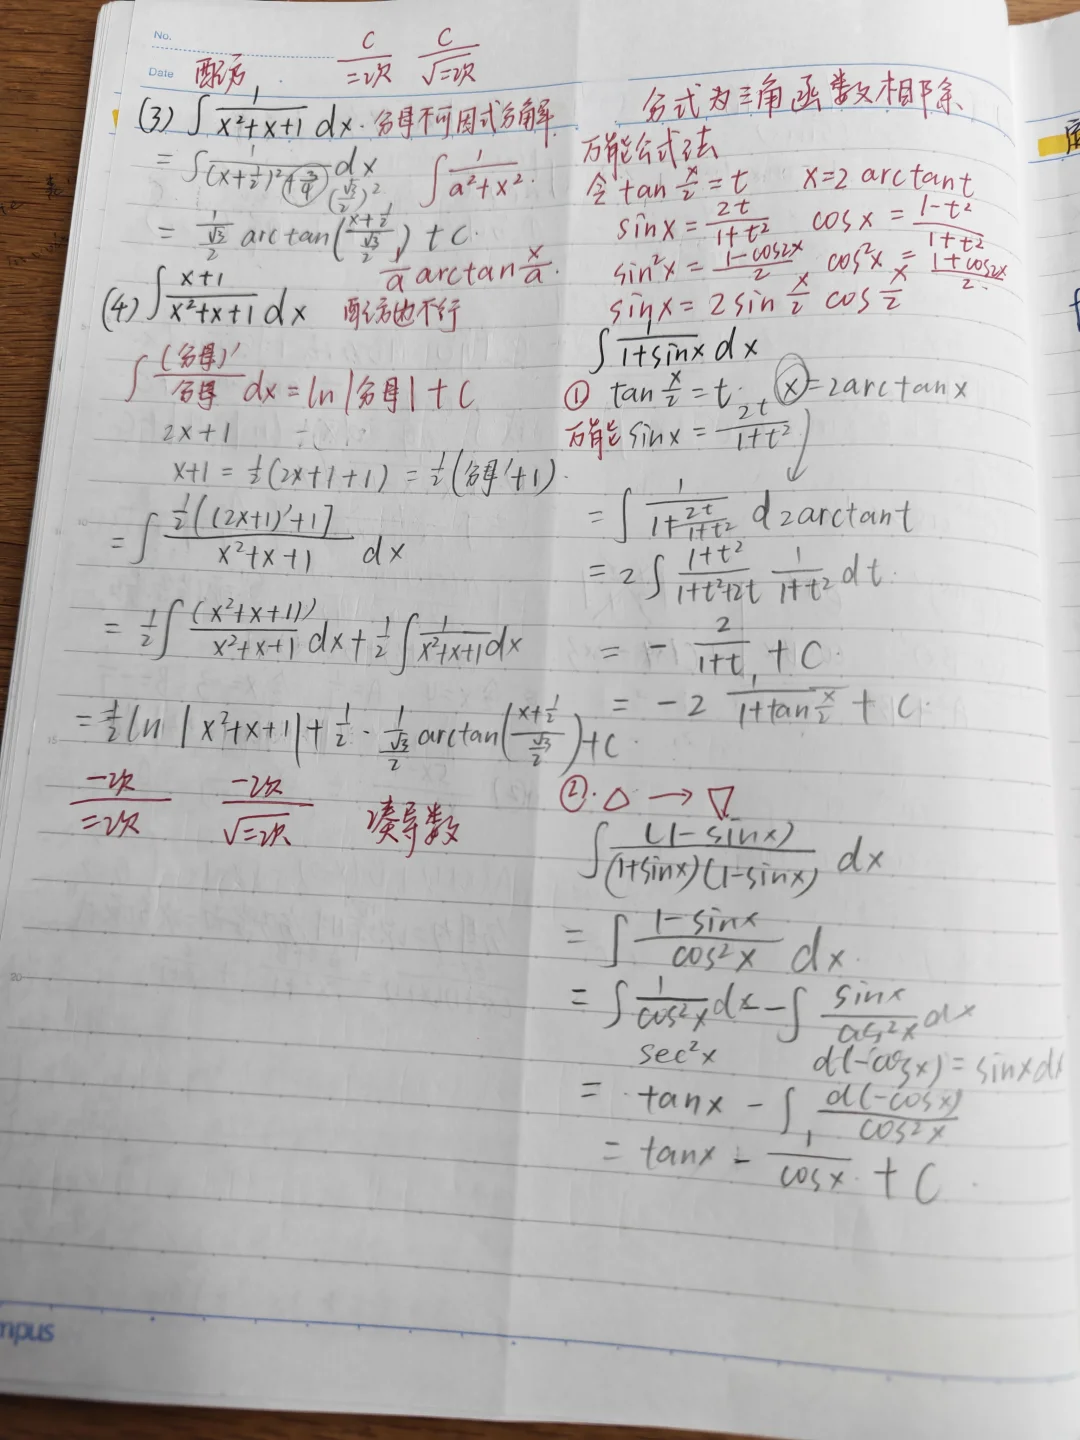 No.
Date
配方 C/二次 C/√二次
(3) ∫ 1/(x²+x+1) dx. 分母不可因式分解
= ∫ 1/((x+½)²+¾) dx ∫ 1/(a²+x²).
(√3/2)²
= 1/(√3/2) arctan((x+½)/(√3/2)) + C.
1/a arctan x/a.
(4) ∫ (x+1)/(x²+x+1) dx 配方也不行
∫ (分母)'/分母 dx = ln |分母| + C
2x+1
x+1 = ½(2x+1+1) = ½(分母'+1).
= ∫ ½[((2x+1)'+1]/(x²+x+1) dx
= ½ ∫ (x²+x+1)'/(x²+x+1) dx + ½ ∫ 1/(x²+x+1) dx
= ½ ln |x²+x+1| + ½ · 1/(√3/2) arctan((x+½)/(√3/2)) + C.
一次/二次 一次/√二次 凑导数
分式为三角函数相除
万能公式法
令 tan x/2 = t x = 2 arctan t
sinx = 2t/(1+t²) cosx = (1-t²)/(1+t²)
sin²x = (1-cos2x)/2 cos²x = (1+cos2x)/2.
sinx = 2 sin x/2 cos x/2
∫ 1/(1+sinx) dx
① tan x/2 = t. x = 2arctanx
万能 sinx = 2t/(1+t²)
= ∫ 1/(1+2t/(1+t²)) d 2arctant
= 2 ∫ (1+t²)/(1+t²+2t) 1/(1+t²) dt.
= - 2/(1+t) + C.
= -2 1/(1+tan x/2) + C.
②. △ → ▽
∫ (1-sinx)/((1+sinx)(1-sinx)) dx
= ∫ (1-sinx)/cos²x dx.
= ∫ 1/cos²x dx - ∫ sinx/cos²x dx
sec²x d(-cosx) = sinxdx
= tanx - ∫ d(-cosx)/cos²x
= tanx - 1/cosx + C
20
mpus